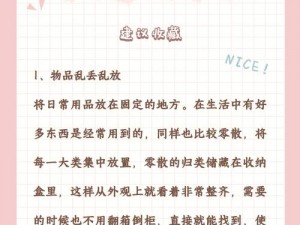 建议收藏
NICE!
1、物品乱丢乱放
将日常用品放在固定的地方。在生活中有好
多东西是经常用到的，同样也比较零散，将
每一大类集中放置，零散的归类储藏在收纳
盒里，这样从外观上就看着非常整齐，需要
的时候也不用翻箱倒柜，直接就能找到，使